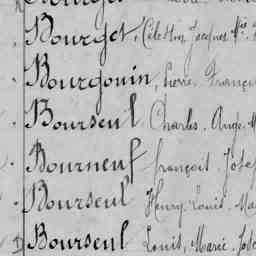 Bourget, Célestin Jacques
Bourgouin, Pierre Franço
Bourseul Charles. Ange. M
Bourneuf françois Josep
Bourseul Henry Louis. Ma
D Bourseul Louis, Marie. Jose